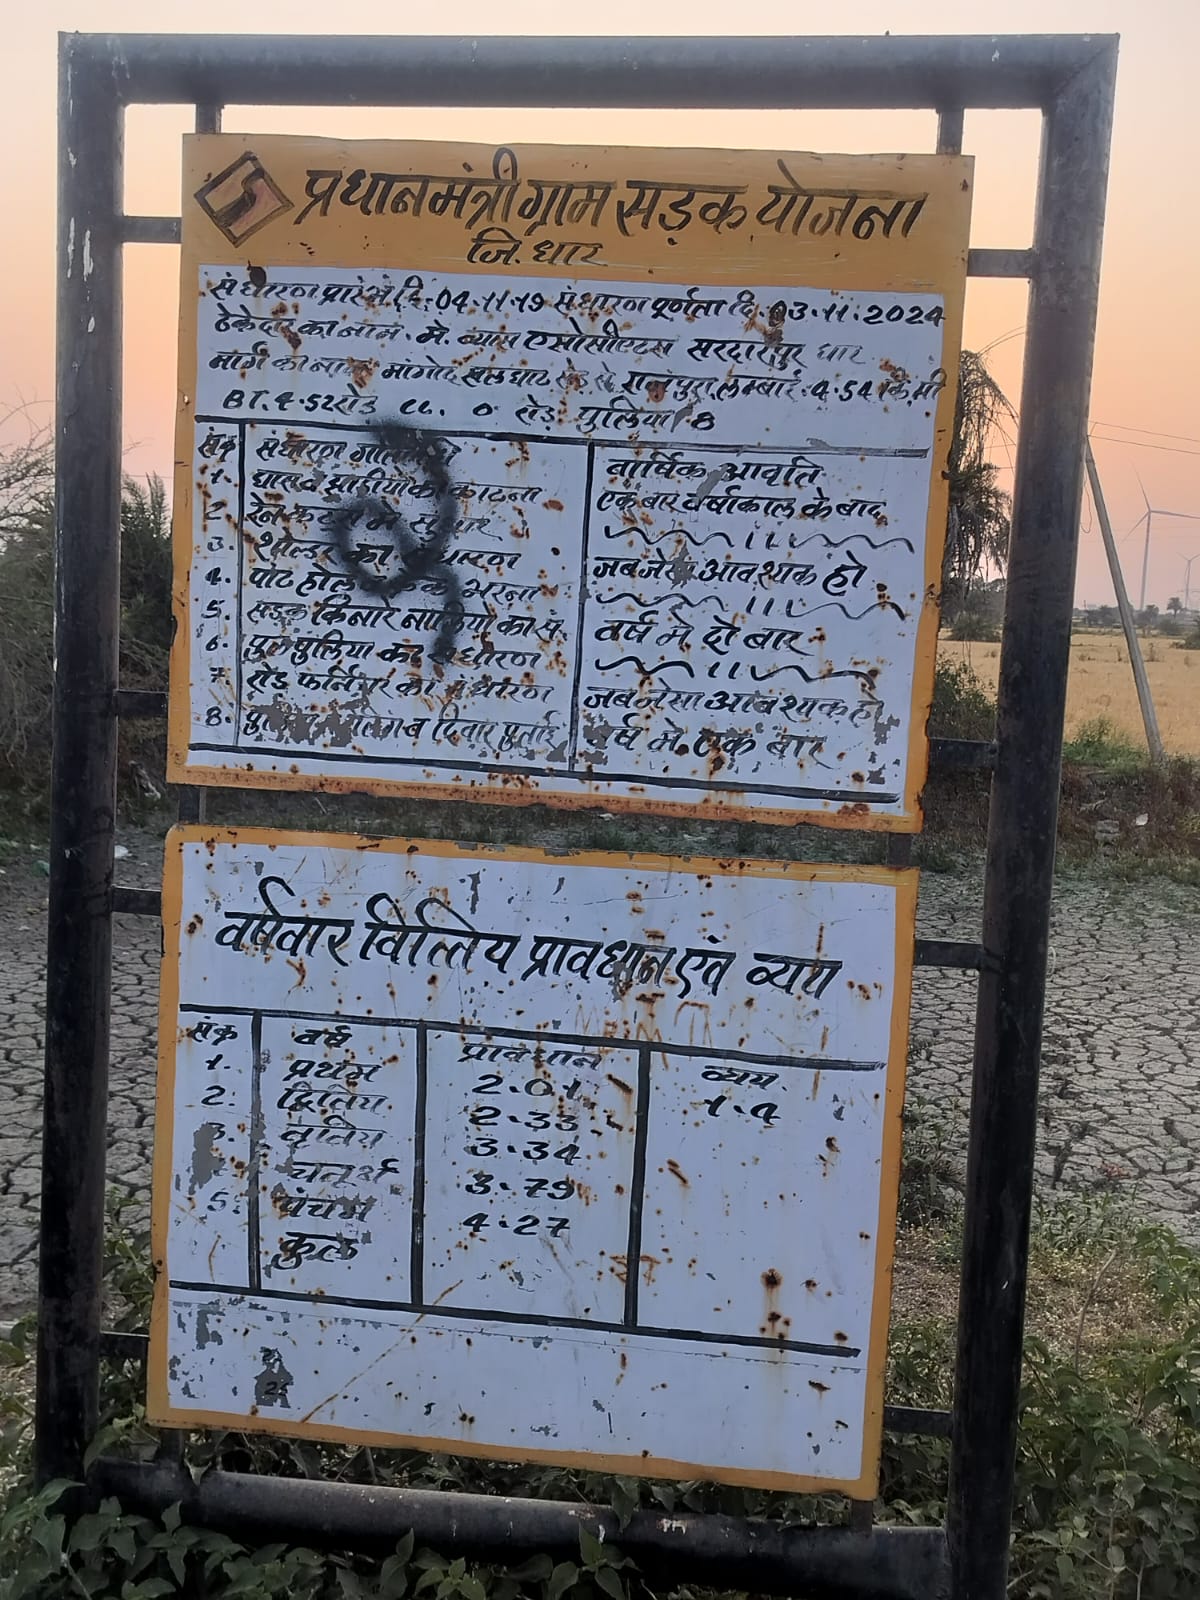 प्रधानमंत्री ग्राम सड़क योजना
जि. धार
संधारण प्रारंभ दि. 04.11.19 संधारण पूर्णता दि. 03.11.2024
ठेकेदार का नाम. मे. व्यास एसोसीएटस सरदारपुर धार
मार्ग का नाम मांगोद रोड से लम्बाई. 4.54 कि.मी
BT. 4.54 रोड CC. 0 रोड पुलिया 8
संक्र संधारण वार्षिक आवृति
1. घास व झाडीयो को काटना एक बार वर्षाकाल के बाद
2. रेन कटस मे सुधार 〃
3. शोल्डर का संधारण जब जेसा आवश्यक हो
4. पाट होल भरना 〃
5. सड़क किनारे नालियो का सं. वर्ष मे दो बार
6. पुल पुलिया का संधारण 〃
7 रोड फर्निचर का संधारण जब जेसा आवश्यक हो
8. दिवार पुताई वर्ष मे. एक बार
वर्षवार वित्तिय प्रावधान एवं व्यय
संक्र वर्ष प्रावधान व्यय
1. प्रथम 2.01 1.4
2. द्वितिय 2.33
3. तृतिय 3.34
चतुर्थ 3.79
5. पंचम 4.27
कुल